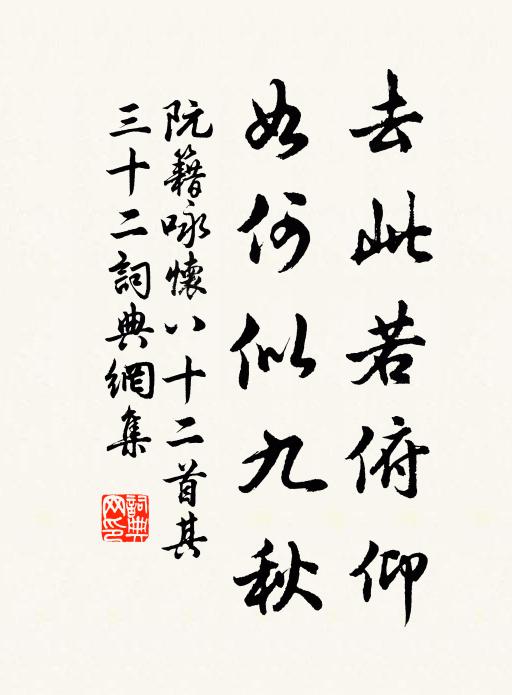 去此若俯仰
如何似九秋
阮籍咏懷八十二首其
三十二詞典網集
詞典
网印